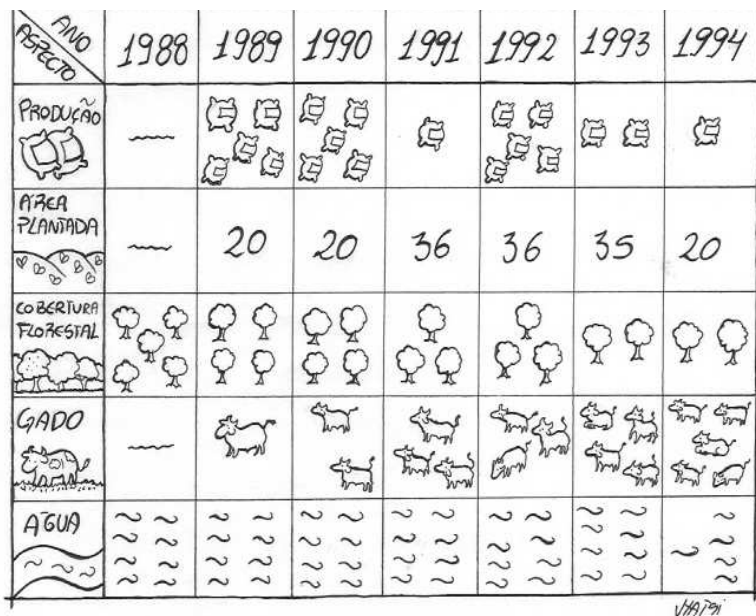 ANO
ASPECTO
1988 1989 1990 1991 1992 1993 1994
PRODUÇÃO
ÁREA
PLANTADA
20 20 36 36 35 20
COBERTURA
FLORESTAL
GADO
ÁGUA